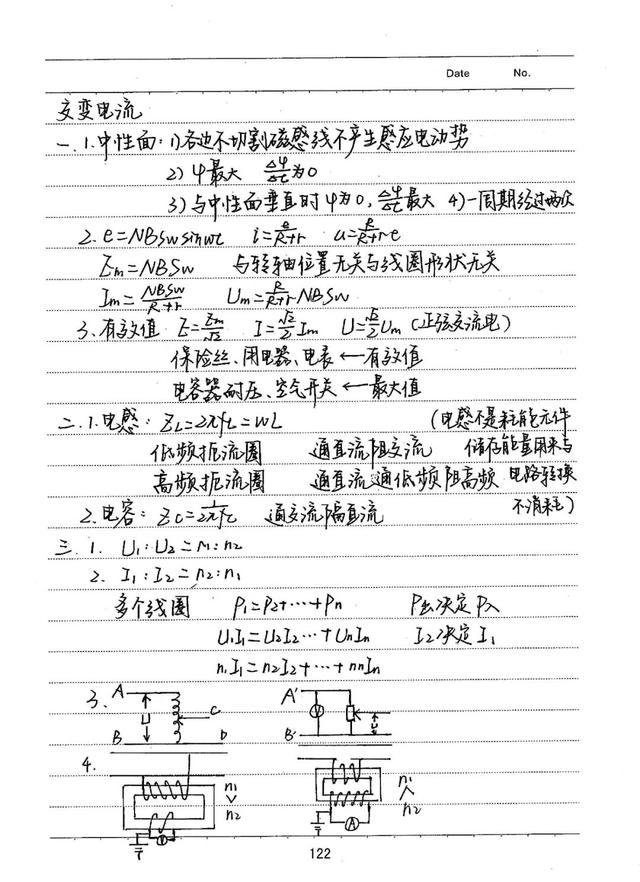 Date No.
交变电流
一.1.中性面:1)各边不切割磁感线不产生感应电动势
2) φ最大 Δφ/Δt为0
3)与中性面垂直时φ为0,Δφ/Δt最大 4)一周期经过两次
2. e=NBSwsinwt i=e/R+r u=R/R+r e
Em=NBSw 与转轴位置无关与线圈形状无关
Im=NBSw/R+r Um=R/R+r NBSw
3.有效值 E=Em/√2 I=√2/2 Im U=√2/2 Um (正弦交流电)
保险丝、用电器、电表←有效值
电容器耐压、空气开关←最大值
二.1.电感: ZL=2πfL=wL (电感不是耗能元件
低频扼流圈 通直流阻交流 储存能量用来与
高频扼流圈 通直流,通低频阻高频 电路转换
2.电容: Zc=1/2πfc 通交流隔直流 不消耗)
三. 1. U1:U2=n1:n2
2. I1:I2=n2:n1
多个线圈 P1=P2+…+Pn P出决定P入
U1I1=U2I2…+UnIn I2决定I1
n1I1=n2I2+…+nnIn
3. A U C B D A' V U B'
4. n1 > n2 A n1 < n2
122